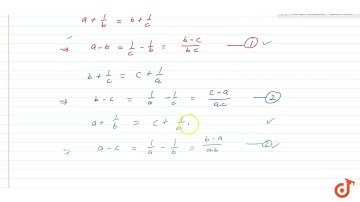 a + 1/b = b + 1/c
⇒ a - b = 1/c - 1/b = b-c/bc — ① ✓
b + 1/c = c + 1/a
⇒ b - c = 1/a - 1/c = c-a/ac — ②
a + 1/b = c + 1/a. ✓
⇒ a - c = 1/a - 1/b = b-a/ab
doubtnut